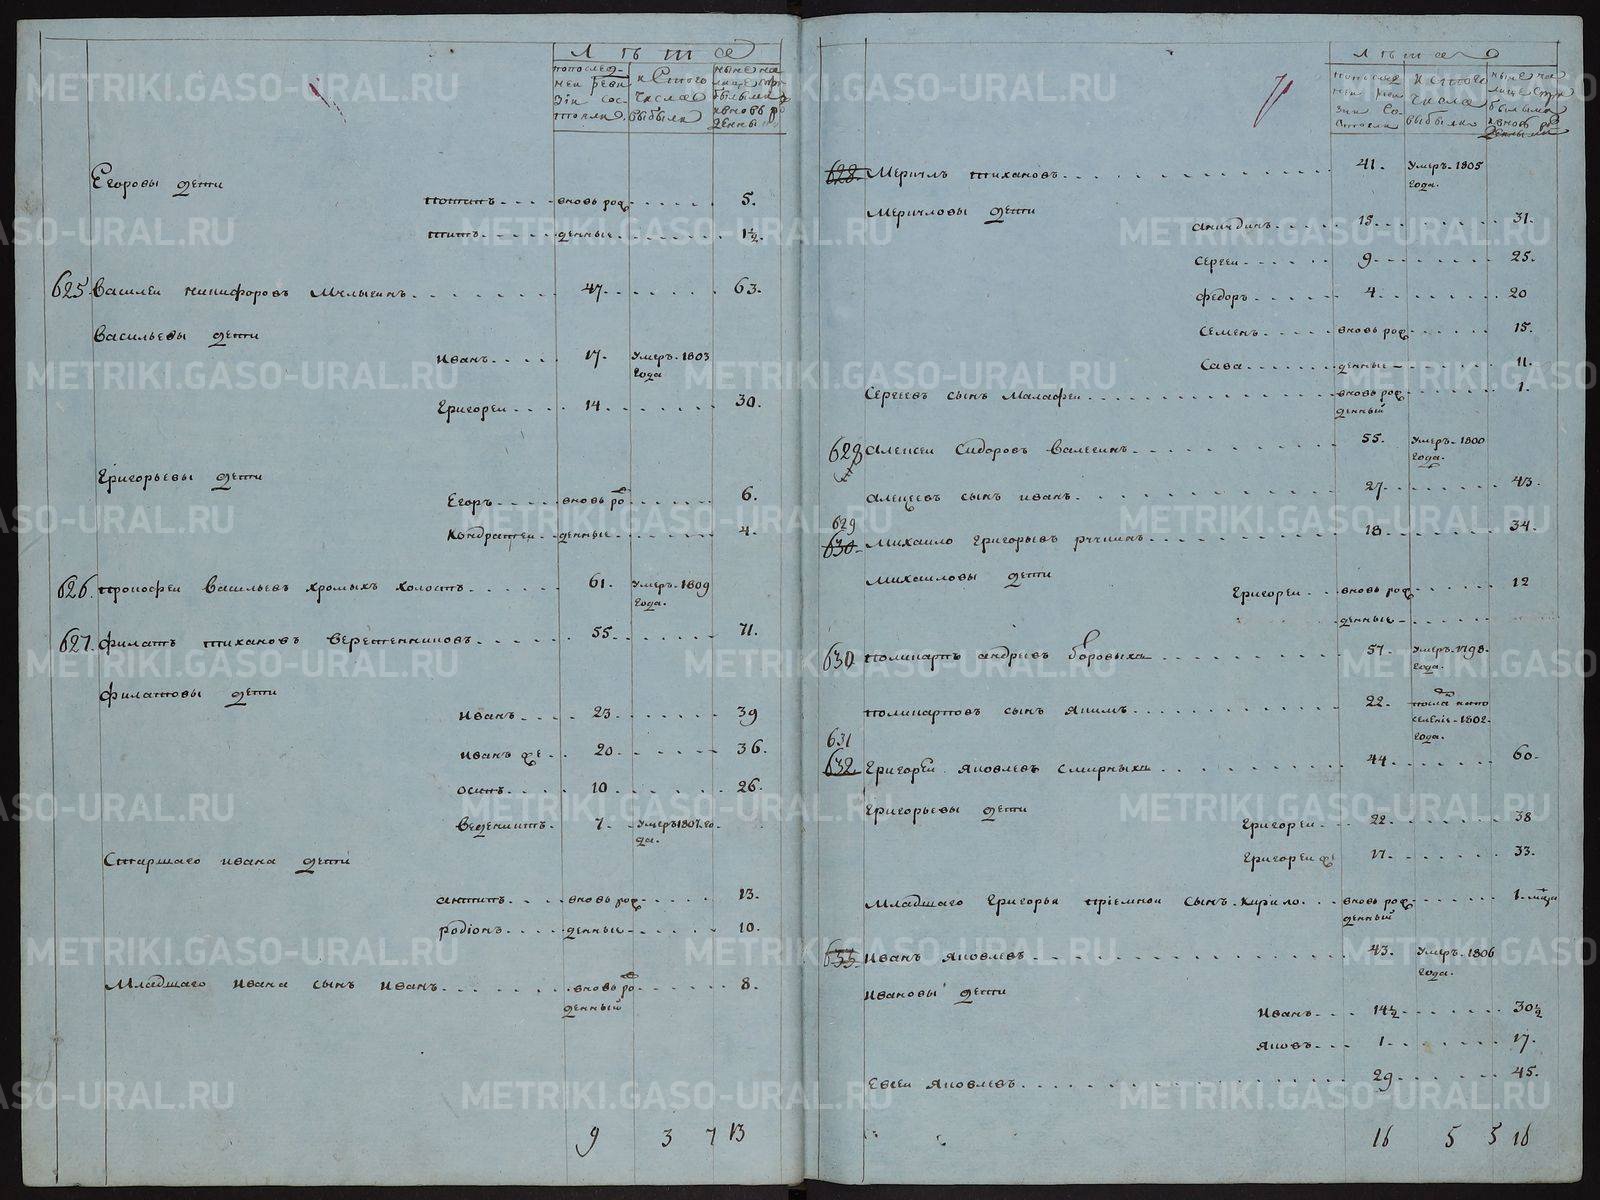 Лѣта
попослед-
ней реви
зіи сос-
тояло.
и Съного
числа
выбыли
ныне на
лице
Егоровы дети
потапъ.... вновь рож...... 5.
титъ.... денные........ 1½.
625. Василеи никифоровъ Мылыгинъ........ 47....... 63.
Васильевы дети
иванъ..... 17. умеръ. 1803
года
Григореи.... 14........ 30.
Григорьевы дети
Егоръ..... вновь ро....... 6.
Кондратеи.. денные....... 4.
626. прокофеи Васильевъ хромыхъ холостъ...... 61. умеръ. 1809
года.
627. филатъ тихановъ Веретенниковъ...... 55....... 71.
филатовы дети
иванъ.... 23....... 39
иванъ же.. 20....... 36.
осипъ.... 10....... 26.
Веденихтъ. 7. умеръ 1807. го-
да.
Старшаго ивана дети
антипъ... вновь рож...... 13.
родіонъ.. денные...... 10.
Младшаго ивана сынъ иванъ........ вновь ро...... 8.
денный
9 3 7 13
Лѣта
628. тихановъ......... 41. умеръ. 1805
года.
дети
15....... 31.
Сергеи...... 9....... 25.
федоръ...... 4....... 20
Семенъ..... вновь рож...... 15.
Сава...... денные...... 11.
Сергеевъ сынъ Малафеи........... вновь рож..... 1.
денный
628 алексеи Сидоровъ Валегинъ......... 55. умеръ. 1800
года.
алексеевъ сынъ иванъ......... 27....... 43.
629
630. Михаило Григорьевъ........ 18....... 34.
Михаиловы дети
Григореи... вновь рож...... 12
денные.......
630 поликарпъ андреевъ боровыхъ....... 57. умеръ. 1798.
года.
поликарповъ сынъ якимъ......... 22.
селеніе. 1802.
года.
631
632. Григореи яковлевъ Смирныхъ....... 44....... 60.
Григорьевы дети
Григореи... 22....... 38
Григореи же 17....... 33.
Младшаго Григорья пріемнои сынъ. кирило... вновь рож...... 1.
денный
633. иванъ яковлевъ........... 43. умеръ. 1806
года.
ивановы дети
иванъ... 14½....... 30½
яковъ... 1....... 17.
Евсеи яковлевъ............ 29....... 45.
16 5 5 16
METRIKI.GASO-URAL.RU